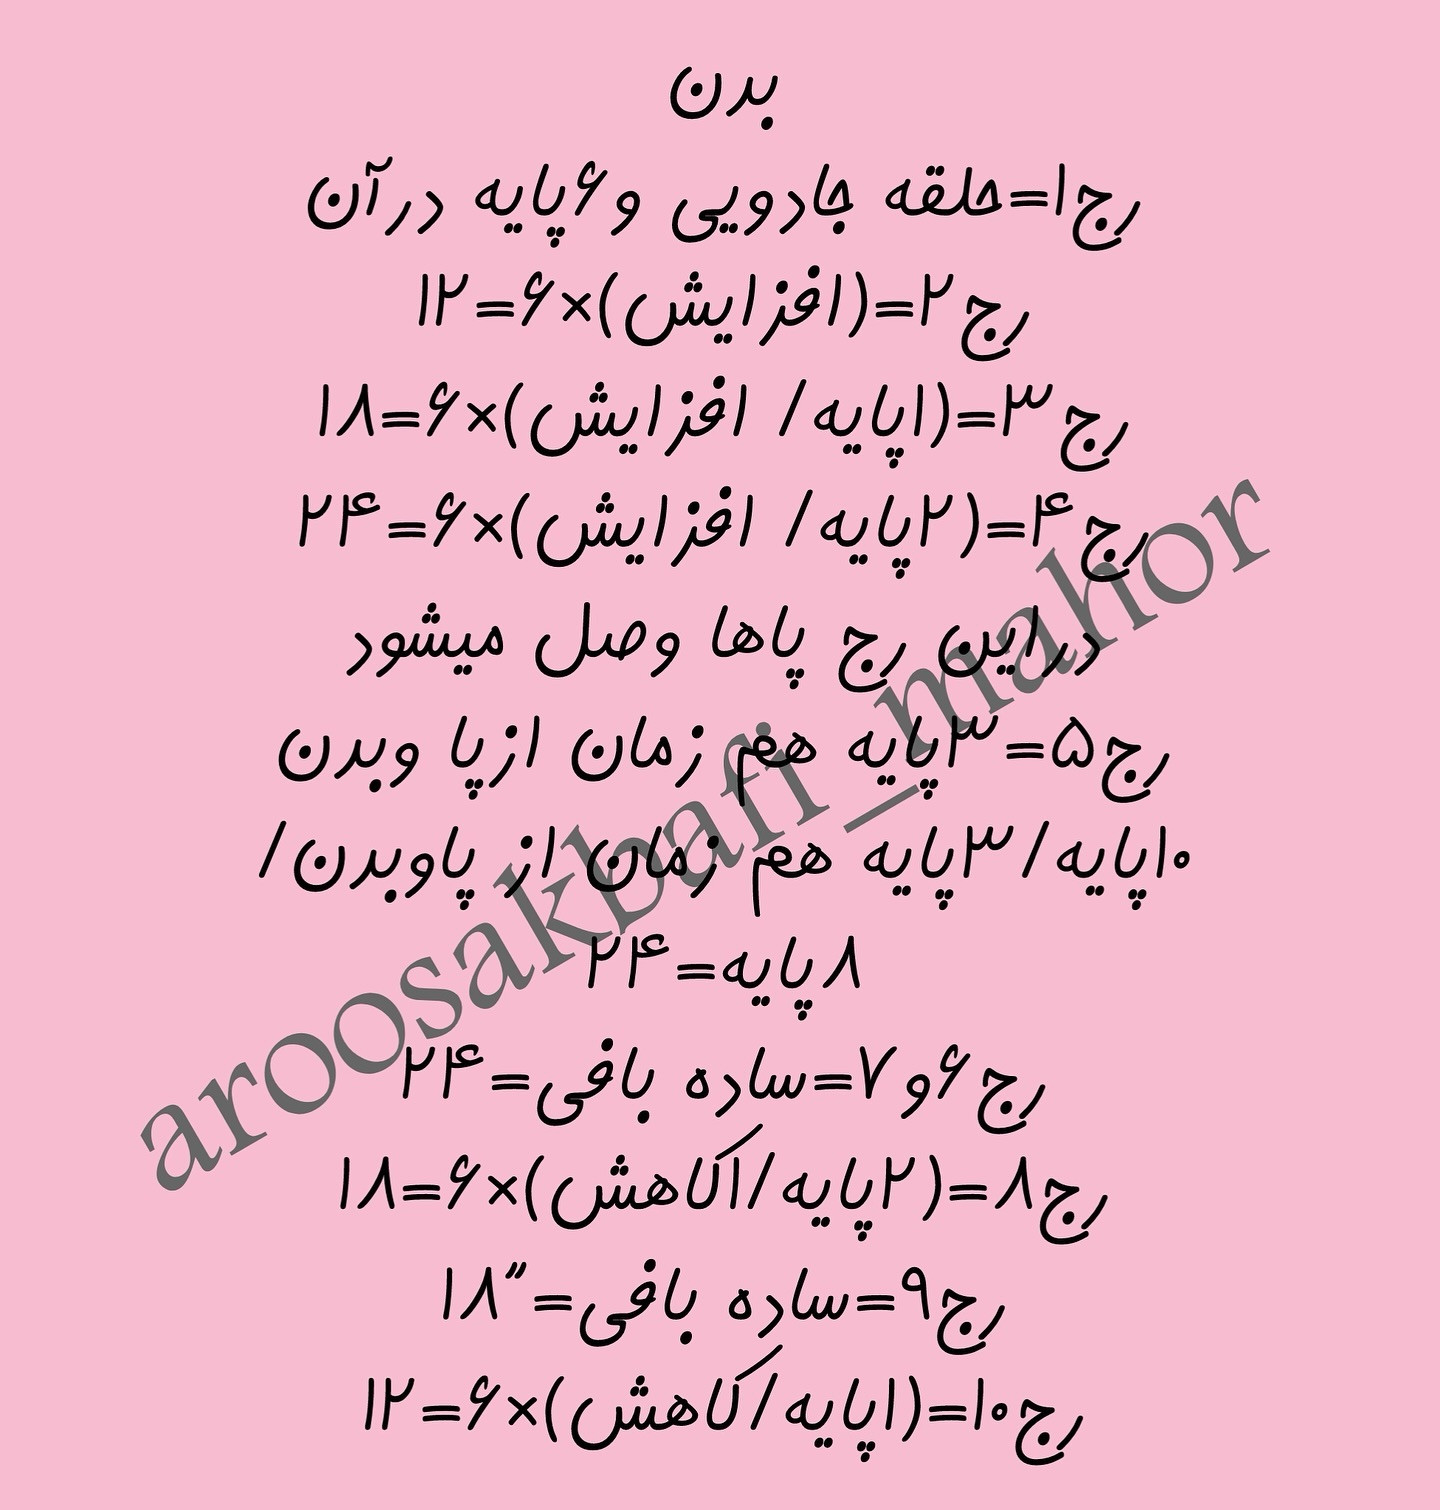 بدن
رج۱=حلقه جادویی و۶پایه درآن
رج۲=(افزایش)×۶=۱۲
رج۳=(۱پایه/ افزایش)×۶=۱۸
رج۴=(۲پایه/ افزایش)×۶=۲۴
دراین رج پاها وصل میشود
رج۵=۳پایه هم زمان ازپا وبدن
۱۰پایه/۳پایه هم زمان از پاوبدن/
۸پایه=۲۴
رج۶و۷=ساده بافی=۲۴
رج۸=(۲پایه/۱کاهش)×۶=۱۸
رج۹=ساده بافی=”۱۸
رج۱۰=(۱پایه/کاهش)×۶=۱۲
aroosakbafi_mahor